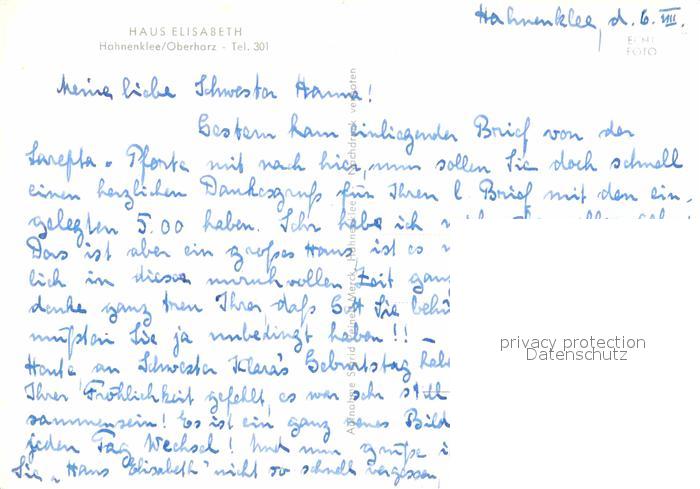 Hahnenklee, d. 6. VIII.
HAUS ELISABETH
Hahnenklee/Oberharz - Tel. 301
ECHT
FOTO
Meine liebe Schwester Hanna!
Gestern kam einliegender Brief von der
Sarepta-Pforte mit nach hier, nun sollen Sie doch schnell
einen herzlichen Dankesgruß für Ihren l. Brief mit den ein-
gelegten 5.00 haben. Sehr habe ich
Das ist aber ein großes Haus ist es
lich in dieser unruhvollen Zeit ganz
denke ganz treu Ihrer, daß Gott Sie behü
mußten Sie ja unbedingt haben!! –
Heute an Schwester Klara's Geburtstag habe
Ihre Fröhlichkeit gefehlt, es war sehr still
sammensein! Es ist ein ganz Bild
jeden Tag Wechsel! Und nun grüße i
Sie "Haus Elisabeth" nicht so schnell vergessen,
Merck, Hahnenklee Nachdruck verboten
privacy protection
Datenschutz